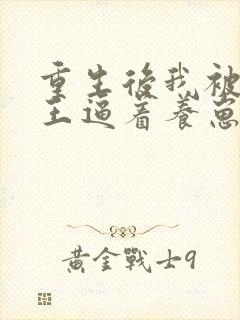 重生後我被
王逼着養崽
黃金戰士9